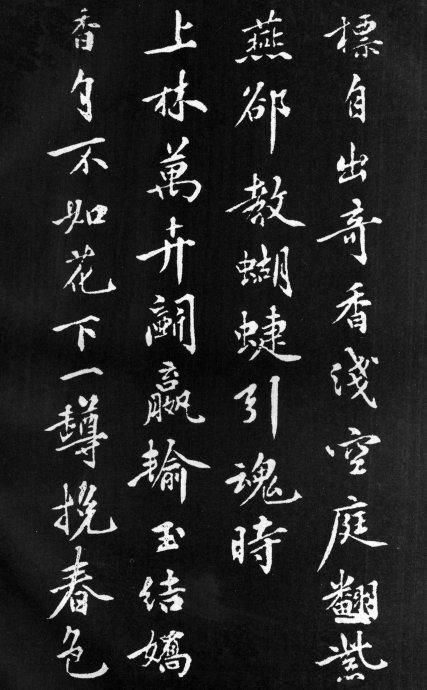 標自出奇香淺空庭翻紫
燕卻教蝴蜨引魂時
上林萬卉鬪贏輸玉結嬌
香自不如花下一罇挽春色